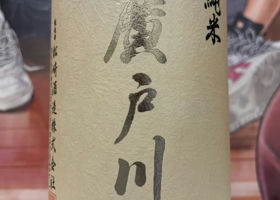 純米
廣戸川
松崎酒造株式会社